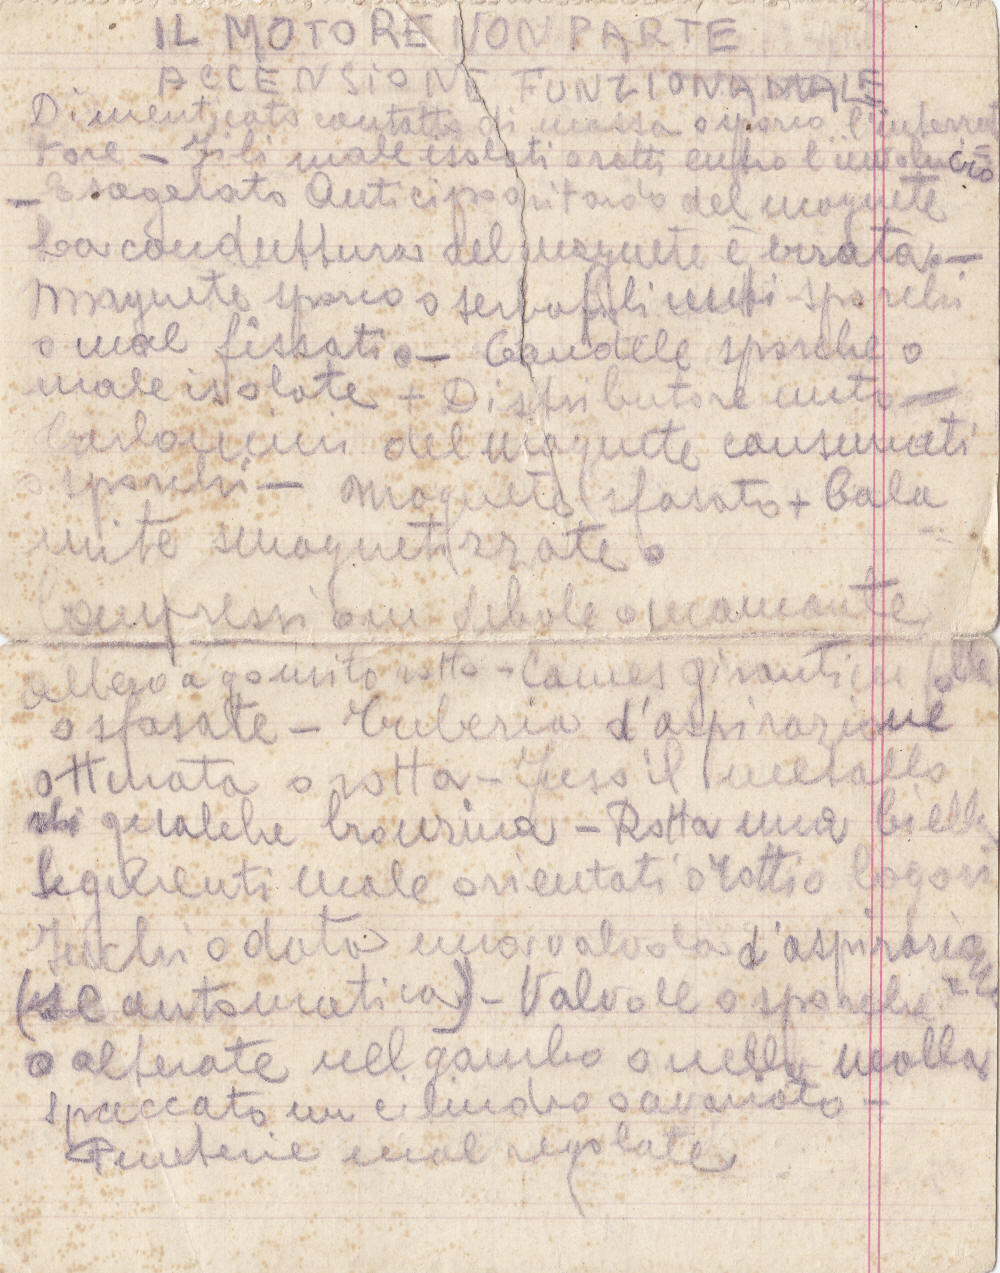 IL MOTORE NON PARTE
ACCENSIONE FUNZIONA MALE
Dimenticato contatto di massa o sporco l'interrut
tore - Fili male isolati o rotti entro l'involucro
- Esagerato Anticipo o ritardo del magnete
La conduttura del magnete è errata -
Magnete sporco o serrafili unti sporchi
o mal fissati - Candele sporche o
male isolate + Distributore unto -
Carboncini del magnete consumati
o sporchi - Magnete sfasato + Cala
mite smagnetizzate.
Compressione debole o mancante
Albero a gomito rotto - Cames giranti in folle
o sfasate - Tuberia d'aspirazione
otturata o rotta - Fuso il metallo
di qualche bronzina - Rotta una biella
Segmenti male orientati o rotti o logori
Inchiodata una valvola d'aspirazione
(se automatica) - Valvole o sporche
o alterate nel gambo o nella molla
spaccato un cilindro o avariato -
Punterie mal regolate